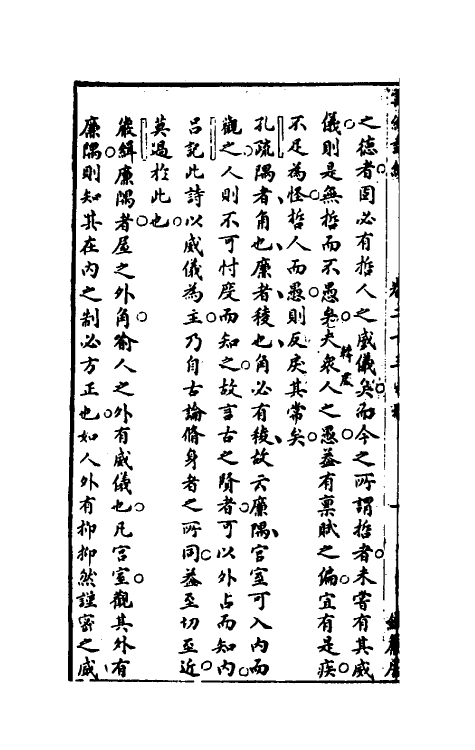 之德者固必有哲人之威儀矣而今之所謂哲者未嘗有其威
儀則是無哲而不愚矣夫衆人之愚蓋有稟賦之偏宜有是疾
不足為怪哲人而愚則反戾其常矣
孔疏隅者角也廉者稜也角必有稜故云廉隅宮室可入內而
觀之人則不可忖度而知之故言古之賢者可以外占而知內
呂記此詩以威儀為主乃自古論脩身者之所同蓋至切至近
莫過於此也
嚴緝廉隅者屋之外角喻人之外有威儀也凡宮室觀其外有
廉隅則知其在內之制必方正也如人外有抑抑然謹密之威